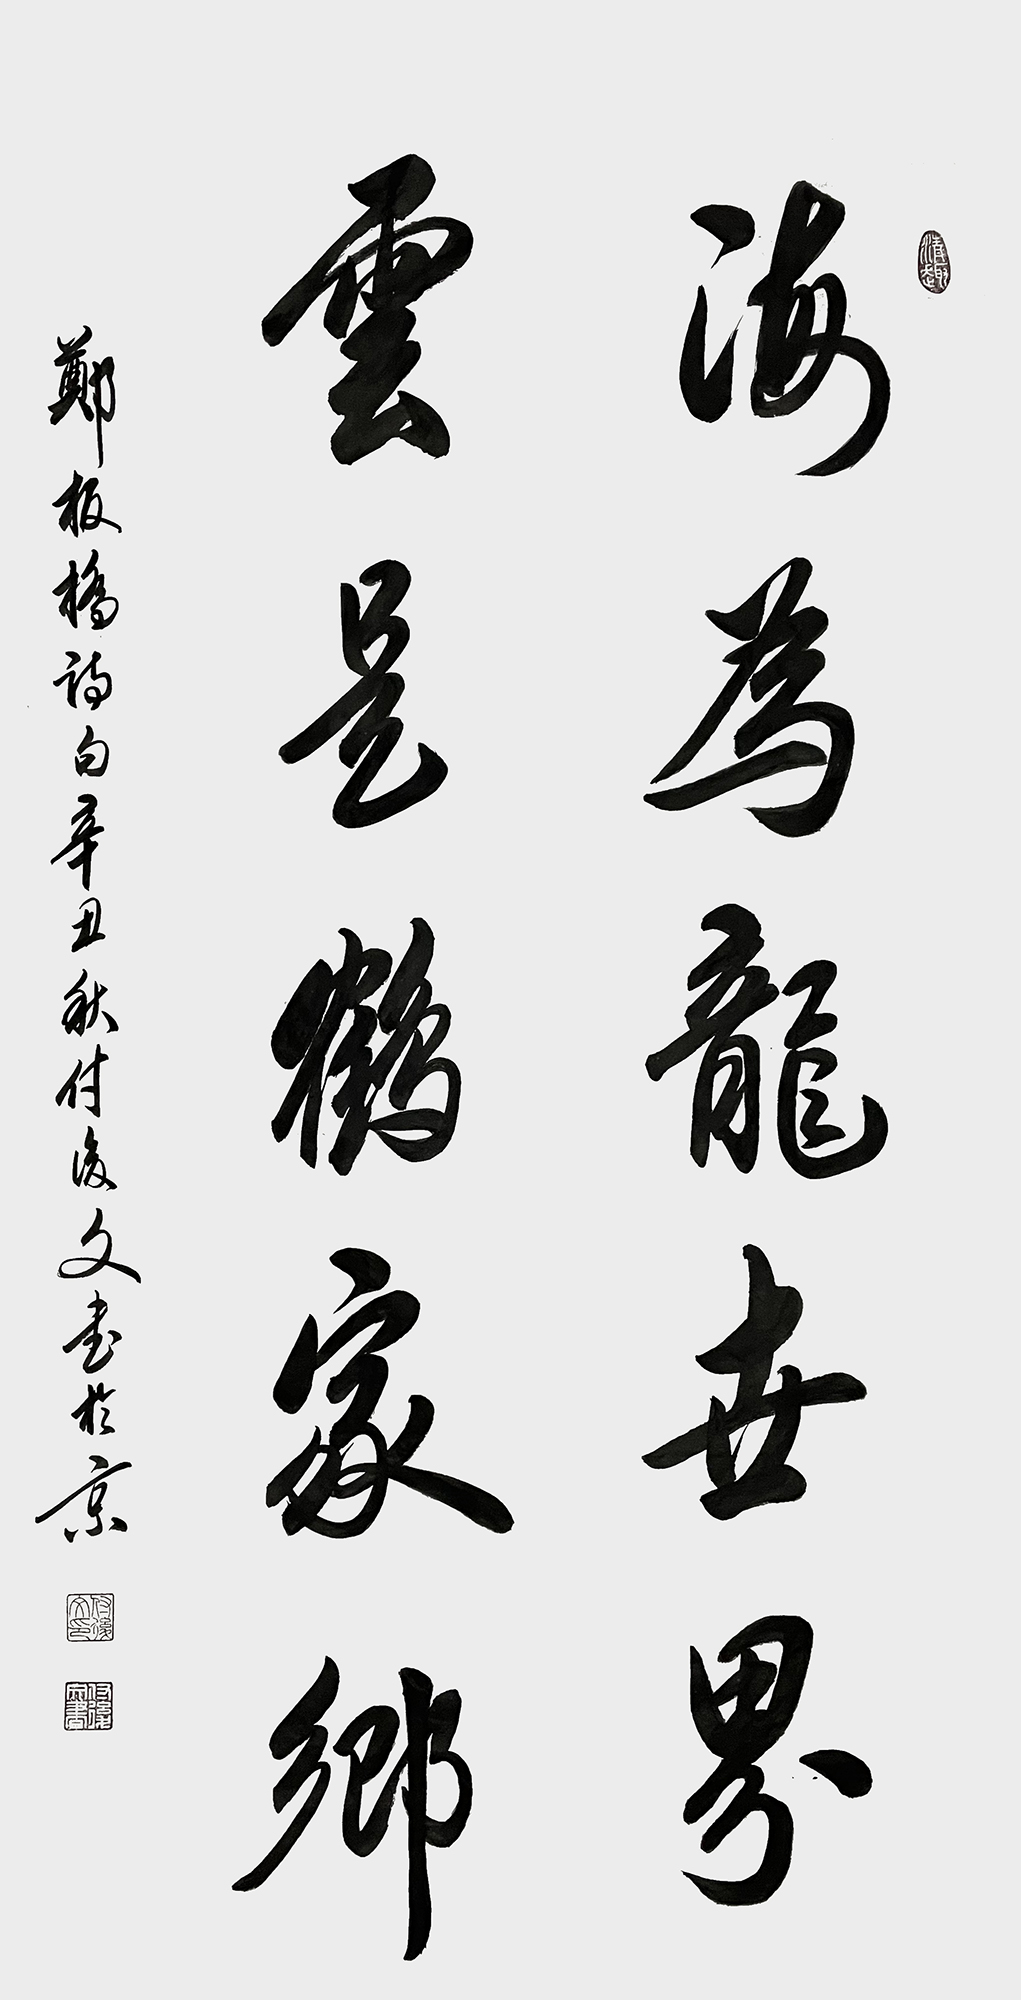 海為龍世界
雲是鶴家鄉
鄭板橋詩句辛丑秋付俊文書於京
清趣
付俊文印